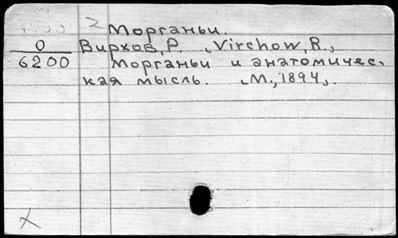 2 Морганьи.
0 Вирхов, Р. (Virchow, R.)
6200 Морганьи и анатомичес-
кая мысль. (М., 1894).
X